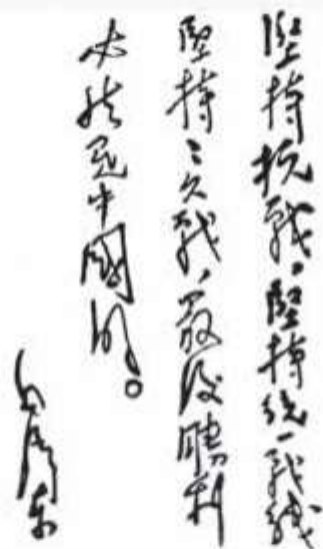 堅持抗戰，堅持統一戰綫
堅持〻久戰，最後勝利
必然是中國的。
毛澤東